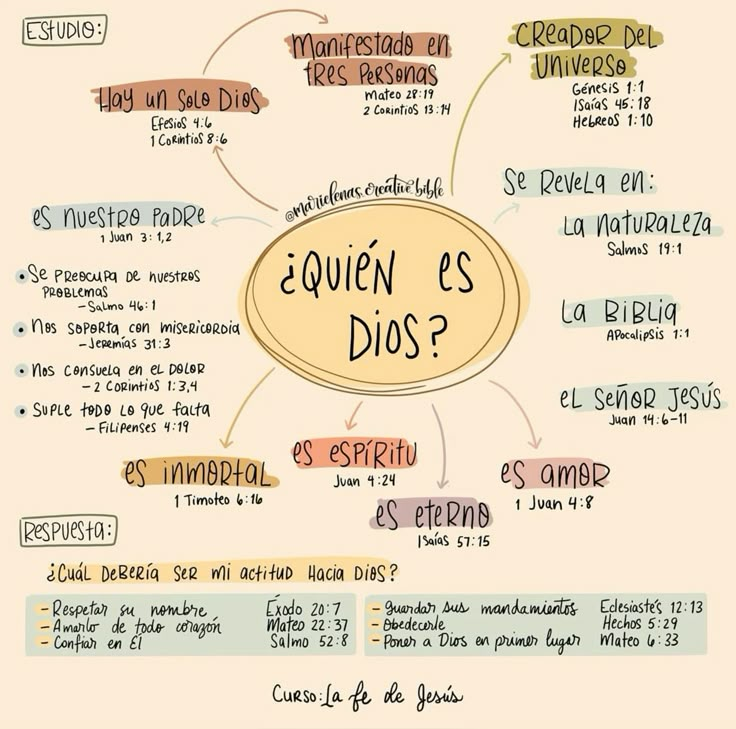 Estudio:
Hay un solo Dios
Efesios 4:6
1 Corintios 8:6
Manifestado en
tres personas
Mateo 28:19
2 Corintios 13:14
Creador del
Universo
Génesis 1:1
Isaías 45:18
Hebreos 1:10
@marielenas.creative.bible
¿Quién es
Dios?
es nuestro Padre
1 Juan 3:1,2
• Se preocupa de nuestros
problemas
– Salmo 46:1
• Nos soporta con misericordia
– Jeremías 31:3
• Nos consuela en el dolor
– 2 Corintios 1:3,4
• Suple todo lo que falta
– Filipenses 4:19
Se revela en:
La naturaleza
Salmos 19:1
La Biblia
Apocalipsis 1:1
el Señor Jesús
Juan 14:6-11
es inmortal
1 Timoteo 6:16
es espíritu
Juan 4:24
es eterno
Isaías 57:15
es amor
1 Juan 4:8
Respuesta:
¿Cuál debería ser mi actitud hacia Dios?
– Respetar su nombre Éxodo 20:7
– Amarlo de todo corazón Mateo 22:37
– Confiar en Él Salmo 52:8
– Guardar sus mandamientos Eclesiastés 12:13
– Obedecerle Hechos 5:29
– Poner a Dios en primer lugar Mateo 6:33
Curso: La fe de Jesús